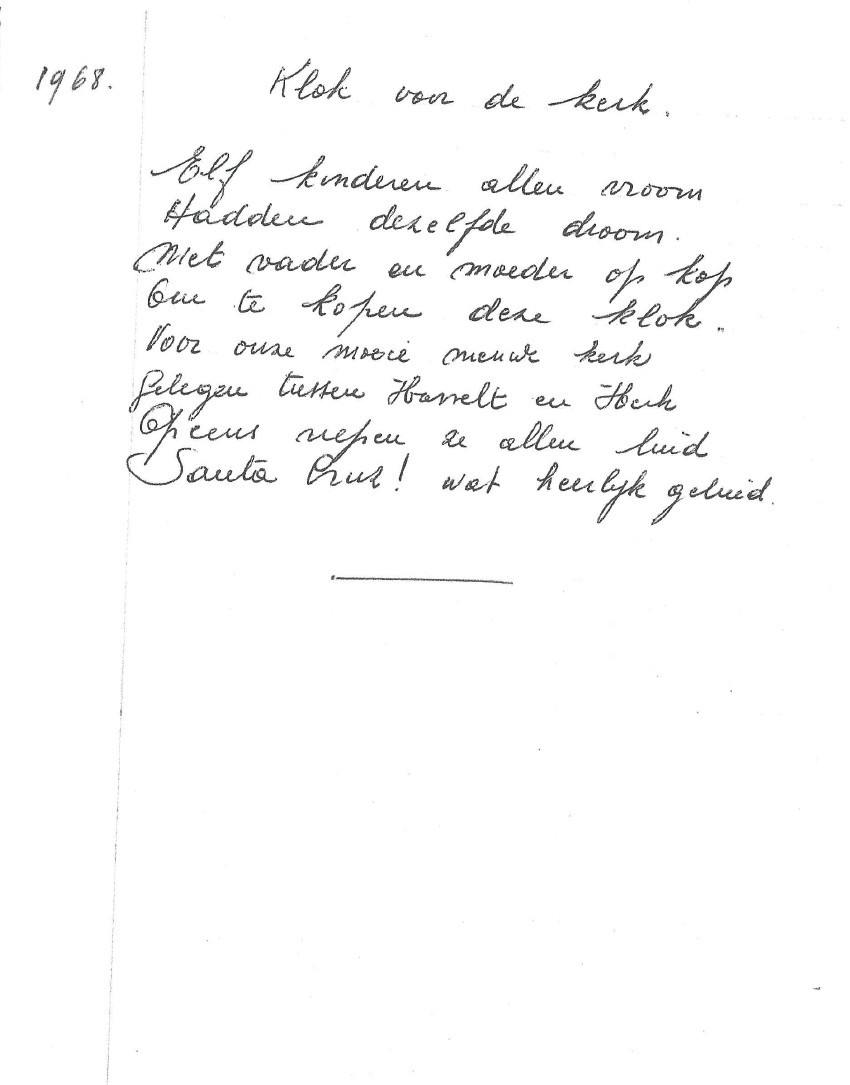 1968.
Klok voor de kerk.
Elf kinderen allen vroom
Hadden dezelfde droom.
Met vader en moeder op kop
Om te kopen deze klok.
Voor onze mooie nieuwe kerk
Gelegen tussen Hasselt en Herk
Opeens riepen ze allen luid
Santa Cruz! wat heerlijk geluid.